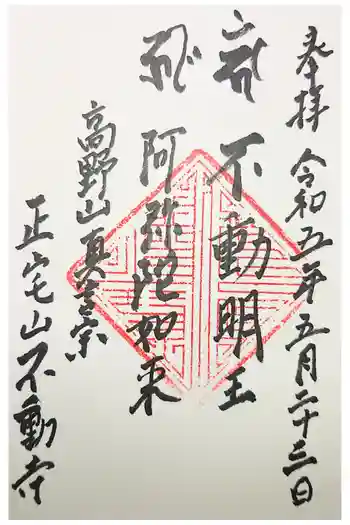 奉拝 令和五年五月二十三日
不動明王
阿弥陀如来
高野山真言宗
正宅山不動寺